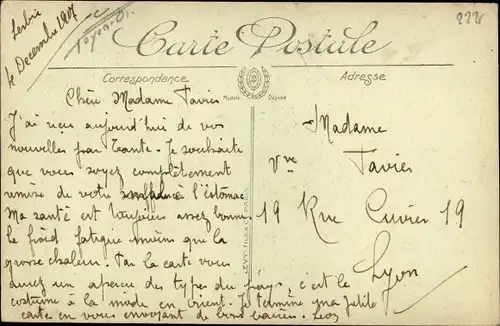 Serbie
4 Decembre 1917
Carte Postale
Correspondance
Adresse
Modèle Déposé
Chère Madame Tavier
J'ai reçu aujourd'hui de vos
nouvelles par Tante. Je souhaite
que vous soyez complètement
remise de votre souffrance à l'estomac
Ma santé est toujours assez bonne
le froid fatigue moins que la
grosse chaleur. Par la carte vous
aurez un aperçu des types du pays, c'est le
costume à la mode en Orient. Je termine ma petite
carte en vous envoyant de bons baisers. Léos
Madame
Vve Tavier
19 Rue Cuvier 19
Lyon